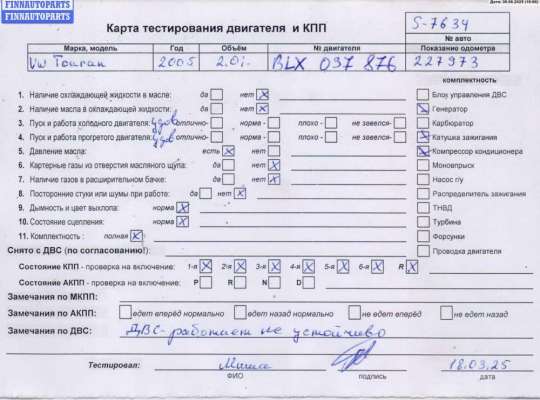 FINNAUTOPARTS
FINNAUTOPARTS
FINNAUTOPARTS
Дата: 30.08.2025
Карта тестирования двигателя и КПП
S-7634
№ авто
Марка, модель Год Объём № двигателя Показание одометра
VW Touran 2005 2.0i BLX 037 876 227973
комплектность
1. Наличие охлаждающей жидкости в масле: да нет X Блоу управления ДВС
2. Наличие масла в охлаждающей жидкости: да нет X Генератор
3. Пуск и работа холодного двигателя: удов отлично- норма - плохо - не завелся- Карбюратор
4. Пуск и работа прогретого двигателя: удов отлично- норма - плохо - не завелся- Катушка зажигания
5. Давление масла: есть X нет Компрессор кондиционера
6. Картерные газы из отверстия масляного щупа: да нет X Моновпрыск
7. Наличие газов в расширительном бачке: да нет X Насос г/у
8. Посторонние стуки или шумы при работе: да нет X Распределитель зажигания
9. Дымность и цвет выхлопа: норма X ТНВД
10. Состояние сцепления: норма X Турбина
11. Комплектность : полная X Форсунки
Снято с ДВС (по согласованию!): Проводка двигателя
Состояние КПП - проверка на включение: 1-я X 2-я X 3-я X 4-я X 5-я X 6-я X R X
Состояние АКПП - проверка на включение: P R N D
Замечания по МКПП:
Замечания по АКПП: едет вперёд нормально едет назад нормально не едет вперёд не едет назад
Замечания по ДВС: ДВС-работает не устойчиво
Тестировал: Миша 18.03.25
ФИО подпись дата